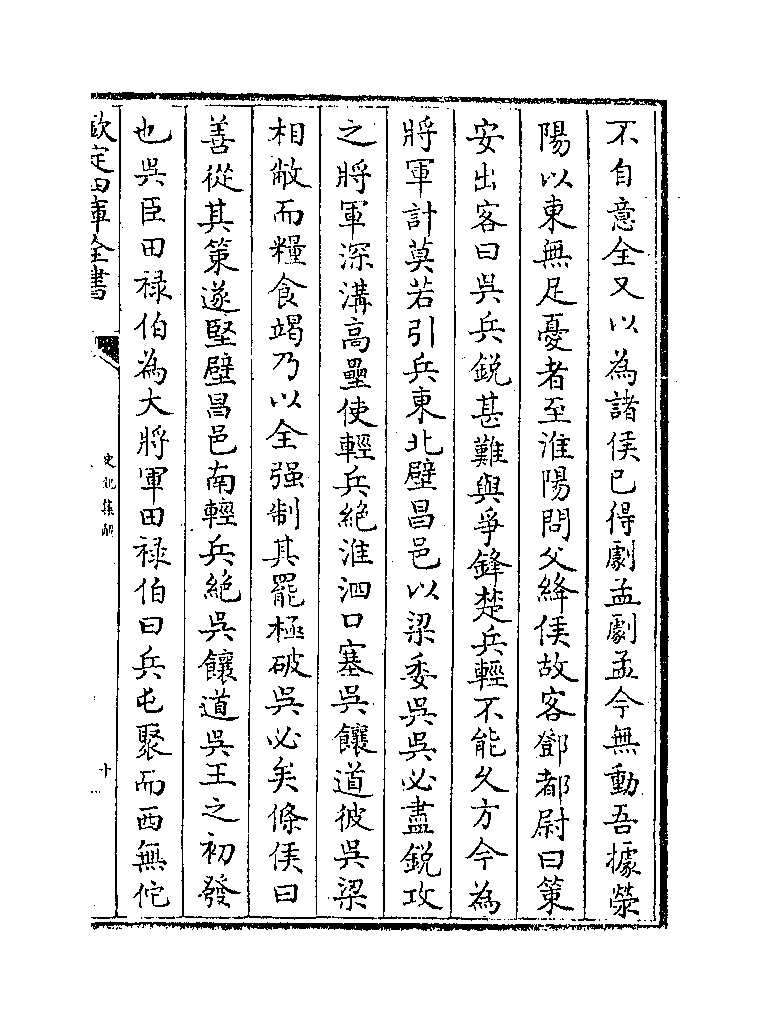 不自意全又以為諸侯已得劇孟劇孟今無動吾據滎
陽以東無足憂者至淮陽問父絳侯故客鄧都尉曰策
安出客曰吳兵鋭甚難與爭鋒楚兵輕不能久方今為
將軍計莫若引兵東北壁昌邑以梁委吳吳必盡鋭攻
之將軍深溝髙壘使輕兵絶淮泗口塞吳饟道彼吳梁
相敝而糧食竭乃以全强制其罷極破吳必矣條侯曰
善從其策遂堅壁昌邑南輕兵絶吳饟道吳王之初發
也吳臣田禄伯為大將軍田禄伯曰兵屯聚而西無佗
欽定四庫全書
史記集解
十